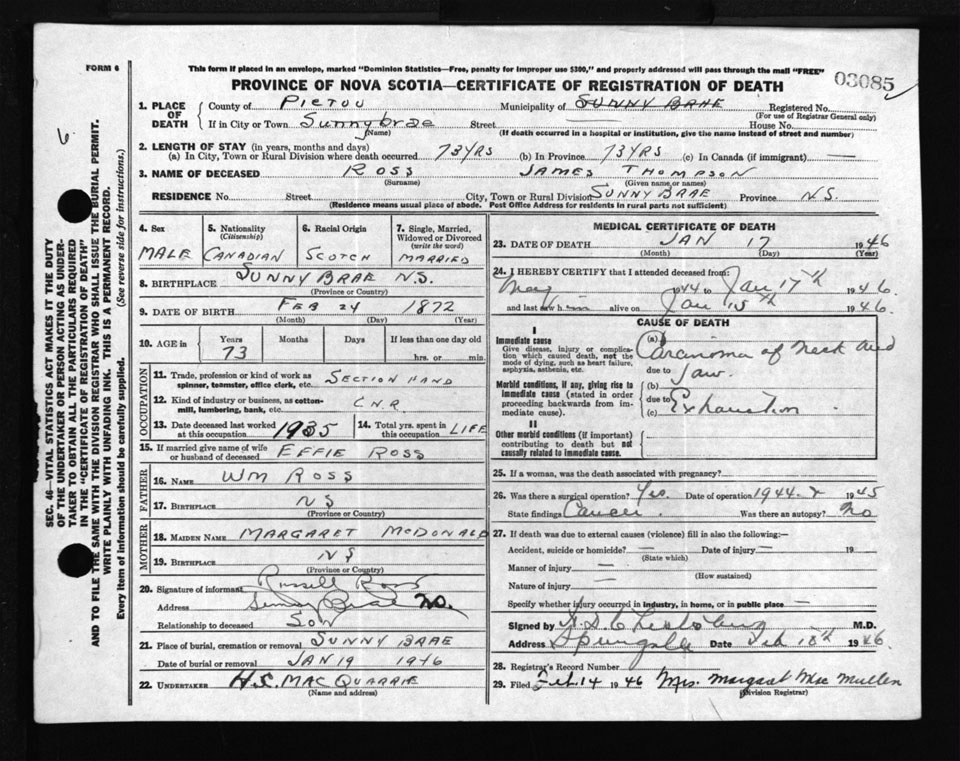 FORM 6
This form if placed in an envelope, marked "Dominion Statistics—Free, penalty for improper use $300," and properly addressed will pass through the mail "FREE"
PROVINCE OF NOVA SCOTIA—CERTIFICATE OF REGISTRATION OF DEATH
03085
6
SEC. 46—VITAL STATISTICS ACT MAKES IT THE DUTY
OF THE UNDERTAKER OR PERSON ACTING AS UNDER-
TAKER TO OBTAIN ALL THE PARTICULARS REQUIRED
IN THE "CERTIFICATE OF REGISTRATION OF DEATH"
AND TO FILE THE SAME WITH THE DIVISION REGISTRAR WHO SHALL ISSUE THE BURIAL PERMIT.
WRITE PLAINLY WITH UNFADING INK. THIS IS A PERMANENT RECORD.
Every item of information should be carefully supplied. (See reverse side for instructions.)
1. PLACE OF DEATH
County of PICTOU Municipality of SUNNY BRAE Registered No.
(For use of Registrar General only)
If in City or Town Sunnybrae Street House No.
(Name) (If death occurred in a hospital or institution, give the name instead of street and number)
2. LENGTH OF STAY (in years, months and days)
(a) In City, Town or Rural Division where death occurred 73 YRS (b) In Province 73 YRS (c) In Canada (if immigrant) —
3. NAME OF DECEASED ROSS JAMES THOMPSON
(Surname) (Given name or names)
RESIDENCE No. Street City, Town or Rural Division SUNNY BRAE Province N.S.
(Residence means usual place of abode. Post Office Address for residents in rural parts not sufficient)
4. Sex 5. Nationality (Citizenship) 6. Racial Origin 7. Single, Married, Widowed or Divorced (write the word)
MALE CANADIAN SCOTCH MARRIED
8. BIRTHPLACE SUNNY BRAE N.S.
(Province or Country)
9. DATE OF BIRTH FEB 24 1872
(Month) (Day) (Year)
10. AGE in Years Months Days If less than one day old
73 hrs. or min.
OCCUPATION
11. Trade, profession or kind of work as spinner, teamster, office clerk, etc. SECTION HAND
12. Kind of industry or business, as cotton-mill, lumbering, bank, etc. C.N.R
13. Date deceased last worked at this occupation 1935 14. Total yrs. spent in this occupation LIFE
15. If married give name of wife or husband of deceased EFFIE ROSS
FATHER
16. NAME WM ROSS
17. BIRTHPLACE NS
(Province or Country)
MOTHER
18. MAIDEN NAME MARGARET MCDONALD
19. BIRTHPLACE NS
(Province or Country)
20. Signature of informant Russell Ross
Address Sunny Brae N.S.
Relationship to deceased Son
21. Place of burial, cremation or removal SUNNY BRAE
Date of burial or removal JAN 19 1946
22. UNDERTAKER H.S. MACQUARRIE
(Name and address)
MEDICAL CERTIFICATE OF DEATH
23. DATE OF DEATH JAN 17 1946
(Month) (Day) (Year)
24. I HEREBY CERTIFY that I attended deceased from:
May 1944 to Jan 17th 1946.
and last saw him alive on Jan 15th 1946.
CAUSE OF DEATH
I
Immediate cause
Give disease, injury or complication which caused death, not the mode of dying, such as heart failure, asphyxia, asthenia, etc.
(a) Carcinoma of neck and
due to Jaw.
Morbid conditions, if any, giving rise to immediate cause (stated in order proceeding backwards from immediate cause).
(b)
due to
(c) Exhaustion
II
Other morbid conditions (if important) contributing to death but not causally related to immediate cause.
25. If a woman, was the death associated with pregnancy?
26. Was there a surgical operation? Yes. Date of operation 1944 & 1945
State findings Cancer. Was there an autopsy? No
27. If death was due to external causes (violence) fill in also the following:—
Accident, suicide or homicide? — Date of injury — 19
(State which)
Manner of injury —
(How sustained)
Nature of injury —
Specify whether injury occurred in industry, in home, or in public place —
Signed by M.D.
Address Date Feb 1946
28. Registrar's Record Number
29. Filed Feb. 14 1946 Mrs. Margaret MacMullen
(Division Registrar)